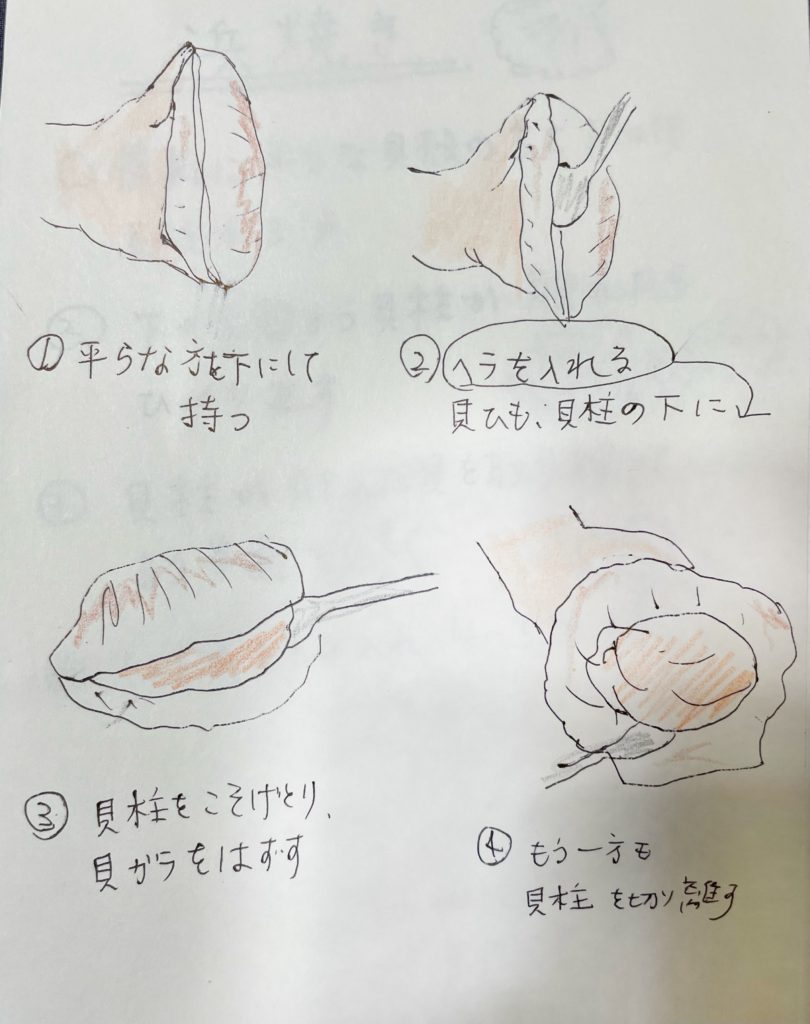 ① 平らな方を下にして
持つ
② ヘラを入れる
貝ひも、貝柱の下に
③ 貝柱をこそげとり、
貝がらをはずす
④ もう一方も
貝柱を切り離す